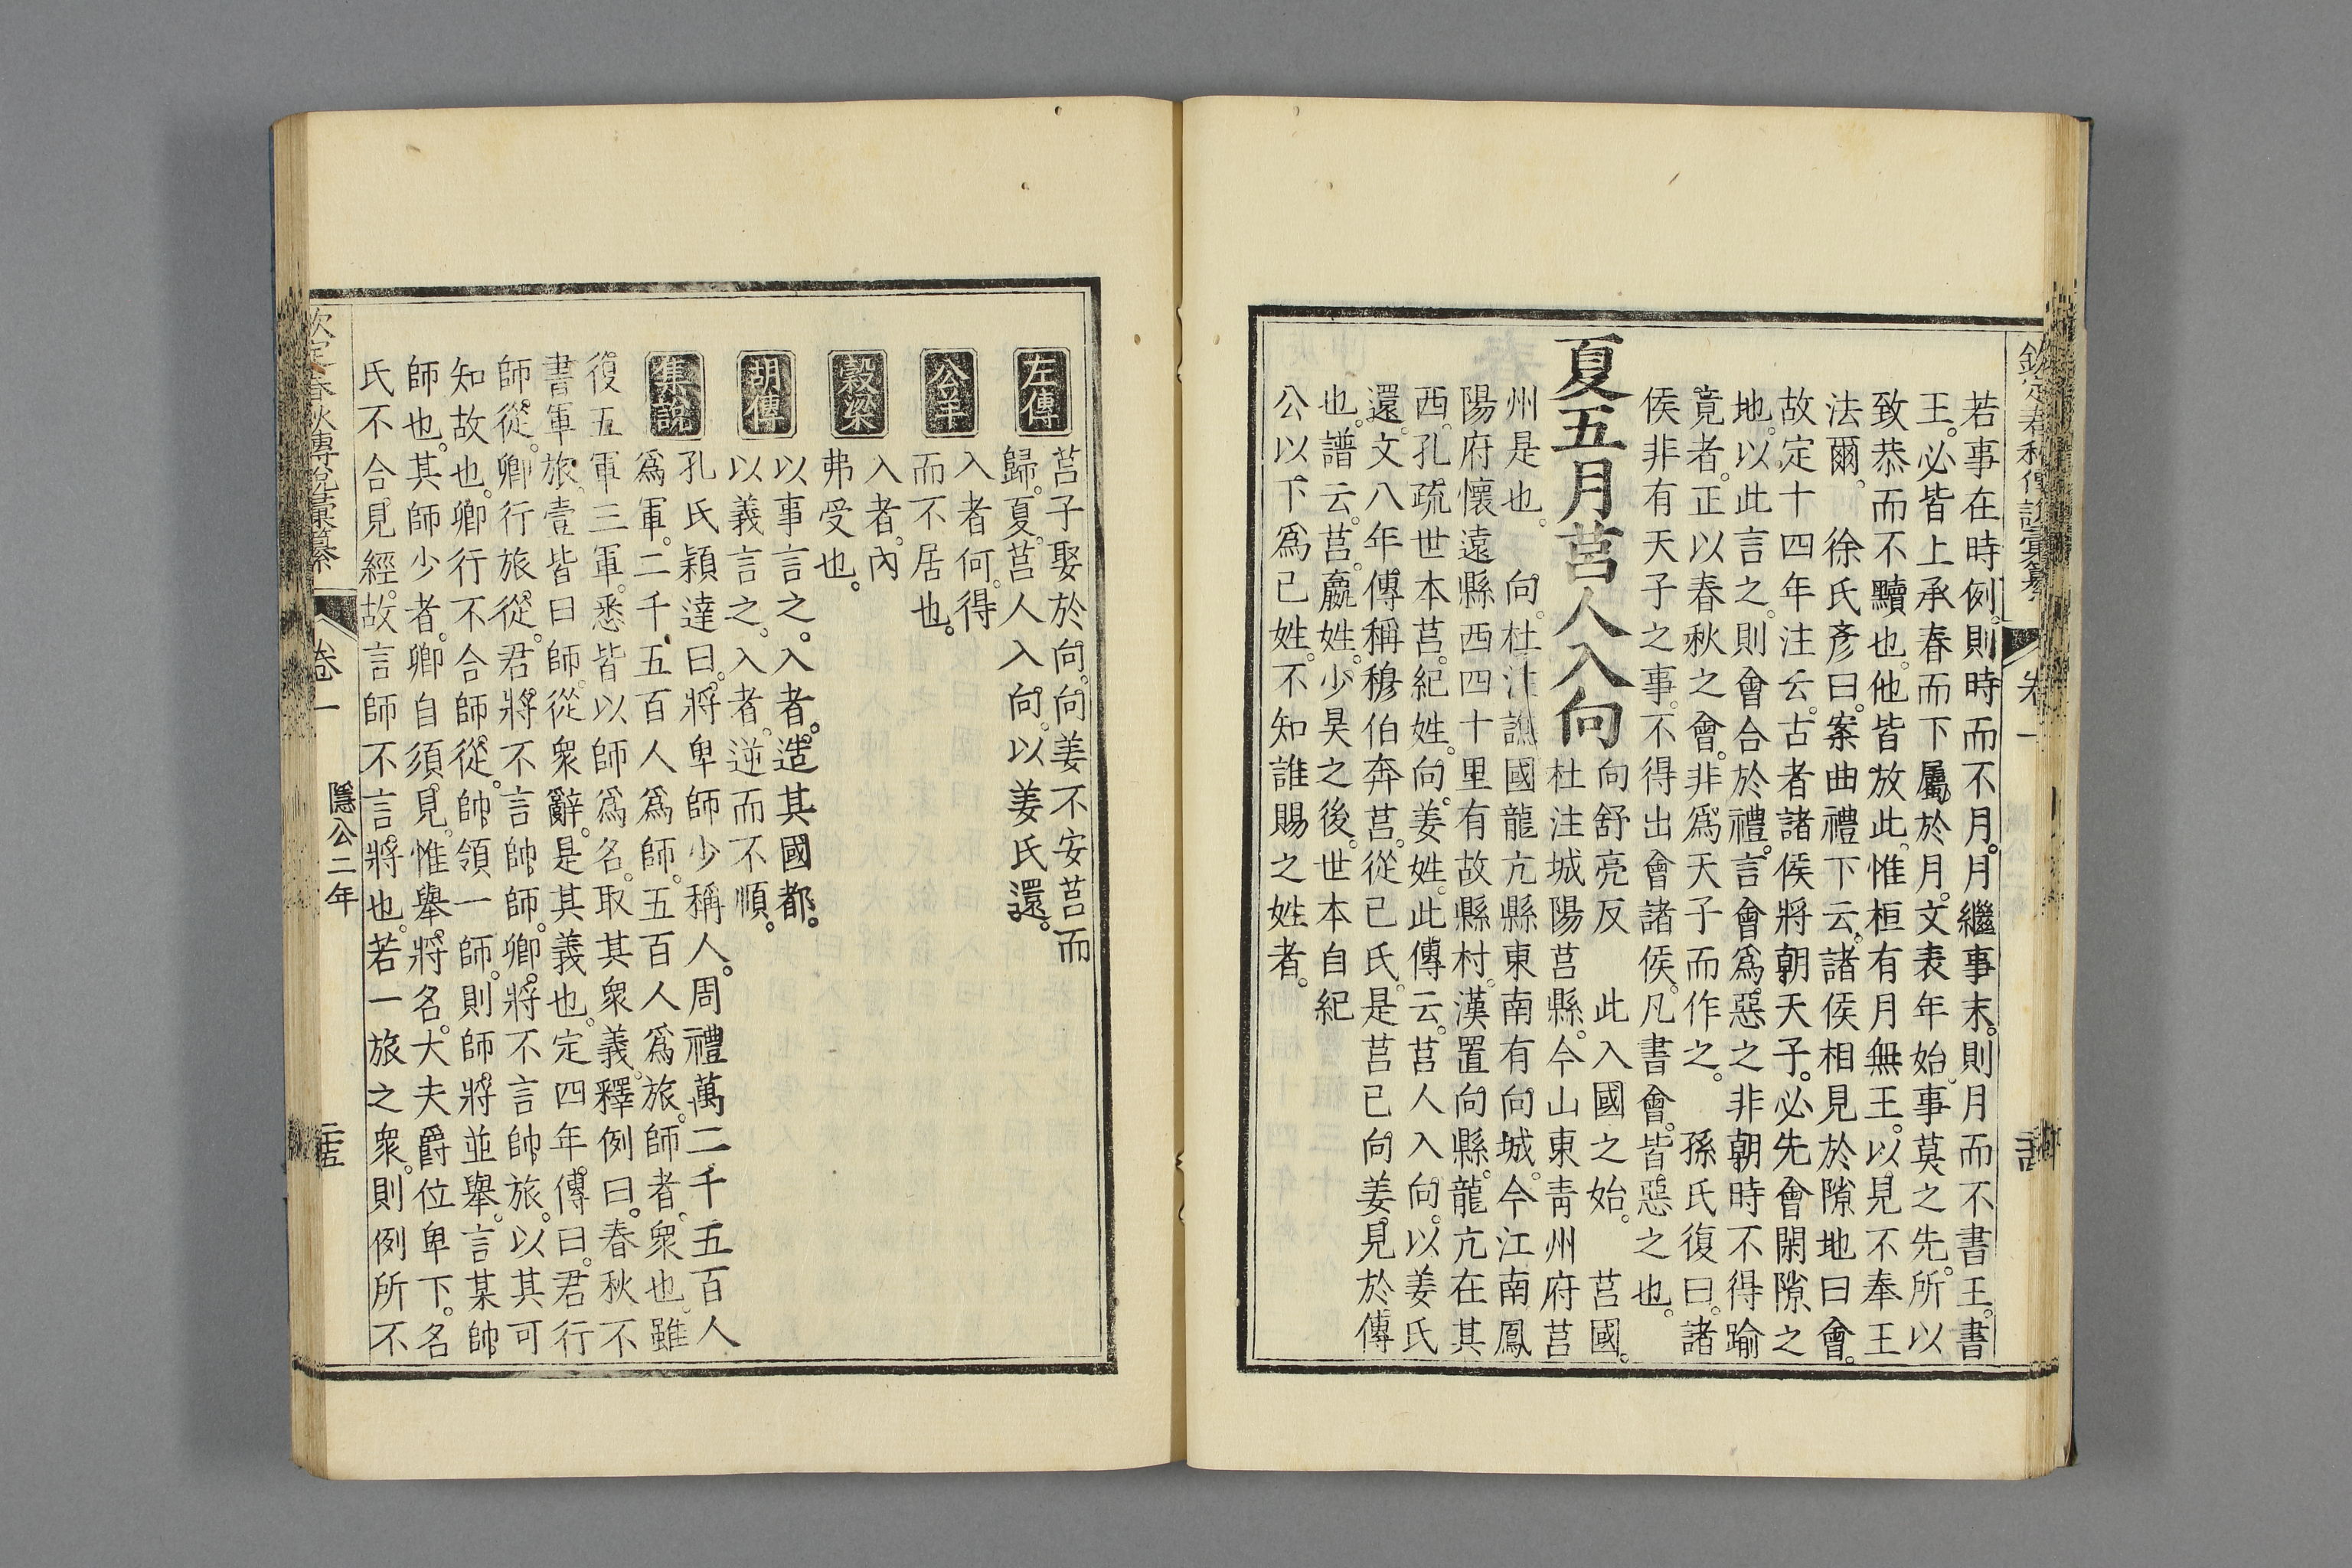 欽定春秋傳說彙纂
卷一
若事在時例。則時而不月。月繼事末。則月而不書王。書
王。必皆上承春而下屬於月。文表年始。事莫之先。所以
致恭而不黷也。他皆放此。惟桓有月無王。以見不奉王
法爾。　徐氏彥曰。案曲禮下云。諸侯相見於隙地曰會。
故定十四年注云。古者諸侯將朝天子。必先會閑隙之
地。以此言之。則會合於禮。言會爲惡之非朝時不得踰
竟者。正以春秋之會。非爲天子而作之。　孫氏復曰。諸
侯非有天子之事。不得出會諸侯。凡書會。皆惡之也。
夏五月莒人入向向舒亮反　此入國之始。　莒國。
杜注城陽莒縣。今山東青州府莒
州是也。　向。杜注譙國龍亢縣東南有向城。今江南鳳
陽府懷遠縣西四十里有故縣村。漢置向縣。龍亢在其
西。孔疏世本莒。紀姓。向。姜姓。此傳云。莒人入向。以姜氏
還。文八年傳稱穆伯奔莒。從己氏。是莒己向姜。見於傳
也。譜云。莒。嬴姓。少昊之後。世本自紀
公以下爲己姓。不知誰賜之姓者。
左傳
莒子娶於向。向姜不安莒而
歸。夏。莒人入向。以姜氏還。
公羊
入者何。得
而不居也。
穀梁
入者。內
弗受也。
胡傳
以事言之。入者。造其國都。
以義言之。入者。逆而不順。
集說
孔氏穎達曰。將卑師少稱人。周禮萬二千五百人
爲軍。二千五百人爲師。五百人爲旅。師者。衆也。雖
復五軍三軍。悉皆以師爲名。取其衆義。釋例曰。春秋不
書軍旅。壹皆曰師。從衆辭。是其義也。定四年傳曰。君行
師從。卿行旅從。君將不言帥師。卿將不言帥旅。以其可
知故也。卿行不合師從。帥領一師。則師將並舉。言某帥
師也。其師少者。卿自須見。惟舉將名。大夫爵位卑下。名
氏不合見經。故言師不言將也。若一旅之衆。則例所不
欽定春秋傳說彙纂
卷一　隱公二年